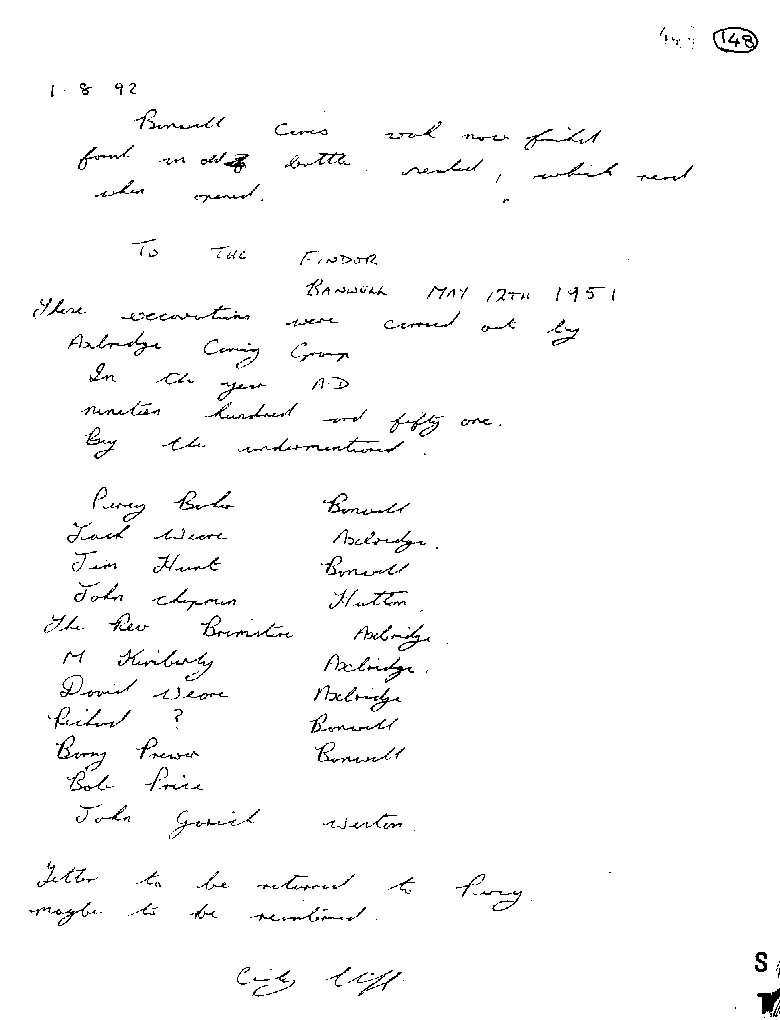 148
1 · 8 92
Banwell Caves work now finished
found in old bottle sealed, which read
when opened.
TO THE FINDOR
BANWELL MAY 12TH 1951
These excavations were carried out by
Axbridge Caving Group
In the year A·D
nineteen hundred and fifty one.
By the undermentioned.
Percy Baker Banwell
Jack Weare Axbridge.
Jim Hunt Banwell
John Chapman Hutton
The Rev Axbridge.
M Kimberly Axbridge.
David Weare Axbridge
Richard ? Banwell
Barry Prewer Banwell
Bob Price
John Weston.
Letter to be returned to Percy.
maybe to be
S